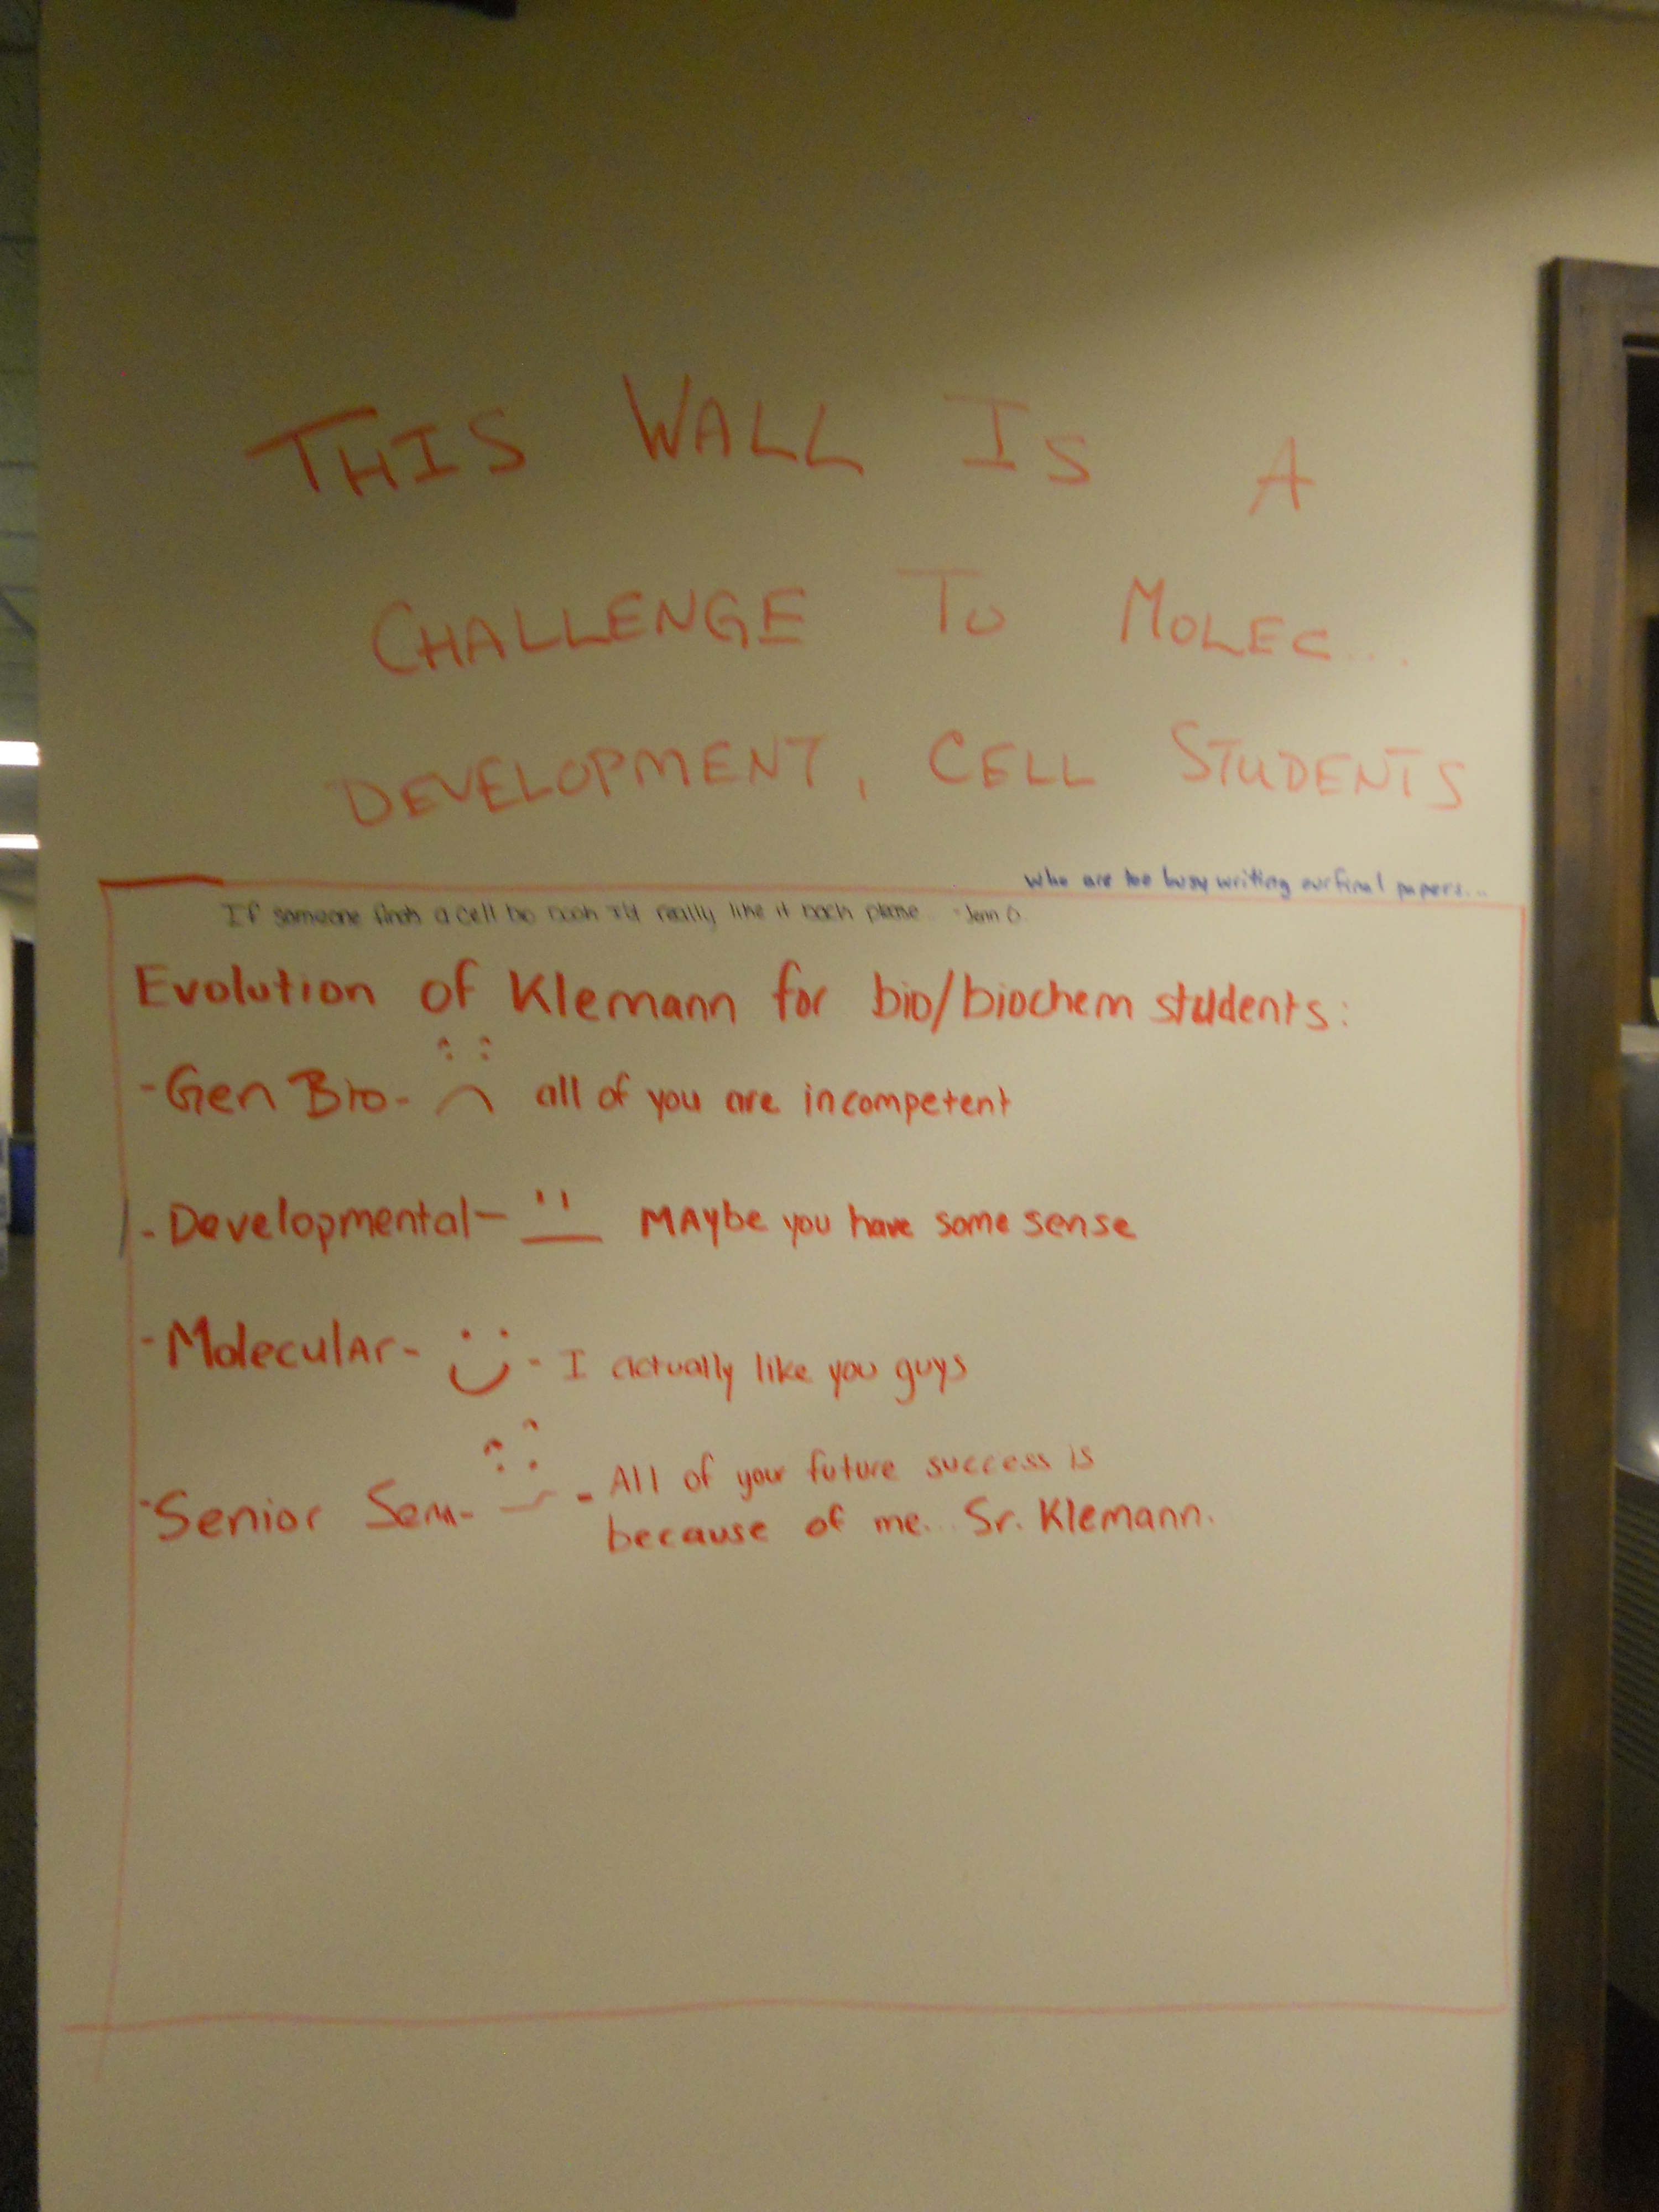 THIS WALL IS A
CHALLENGE TO MOLEC...
DEVELOPMENT, CELL STUDENTS
who are too busy writing our final papers...
If someone finds a cell bio book I'd really like it back please... - Jenn O.
Evolution of Klemann for bio/biochem students:
- Gen Bio - all of you are incompetent
- Developmental - MAybe you have some sense
- MoleculAr - - I actually like you guys
- Senior Sem - - All of your future success is
because of me... Sr. Klemann.